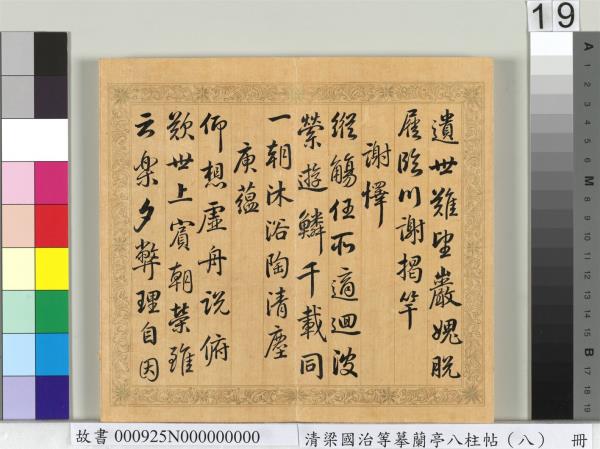 遺世難望巖愧脫
屣臨川謝揭竿
謝懌
縱觴任所適迴波
縈遊鱗千載同
一朝沐浴陶清塵
庾蘊
仰想虛舟說俯
歎世上賓朝榮雖
云樂夕弊理自因
19
故書 000925N000000000
清梁國治等摹蘭亭八柱帖（八） 冊
A
1
2
3
4
5
6
M
8
9
10
11
12
13
14
15
B
17
18
19